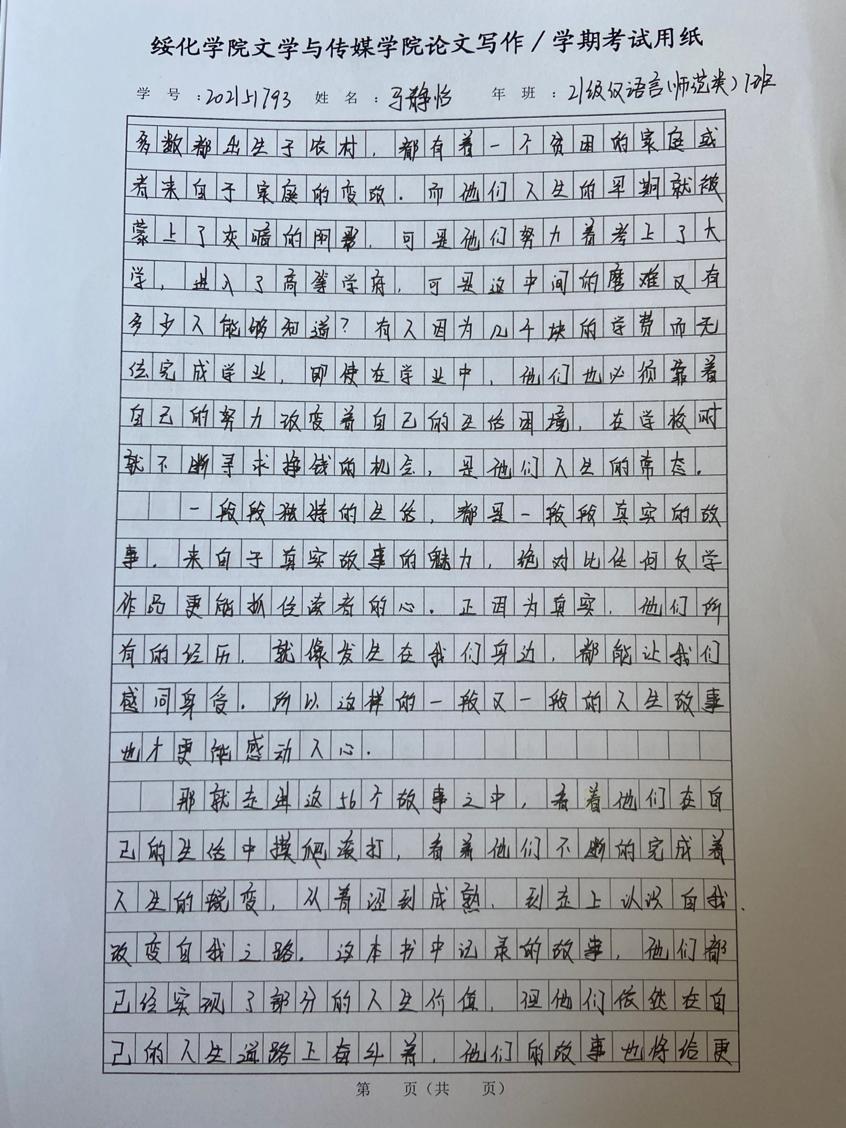 绥化学院文学与传媒学院论文写作/学期考试用纸
学 号 :202151793 姓 名 :马静怡 年 班 :21级汉语言(师范类)1班
多数都出生于农村，都有着一个贫困的家庭或
者来自于家庭的变故。而他们人生的早期就被
蒙上了灰暗的阴影，可是他们努力着考上了大
学，进入了高等学府，可是这中间的磨难又有
多少人能够知道？有人因为几千块的学费而无
法完成学业，即使在学业中，他们也必须靠着
自己的努力改变着自己的生活困境，在学校时
就不断寻求挣钱的机会，是他们人生的常态。
一段段独特的生活，都是一段段真实的故
事。来自于真实故事的魅力，绝对比任何文学
作品更能抓住读者的心。正因为真实，他们所
有的经历，就像发生在我们身边，都能让我们
感同身受。所以这样的一段又一段的人生故事
也才更能感动人心。
那就走进这56个故事之中，看着他们在自
己的生活中摸爬滚打，看着他们不断的完成着
人生的蜕变，从青涩到成熟，到走上认识自我、
改变自我之路。这本书中记录的故事，他们都
已经实现了部分的人生价值，但他们依然在自
己的人生道路上奋斗着，他们的故事也将给更
第 页(共 页)